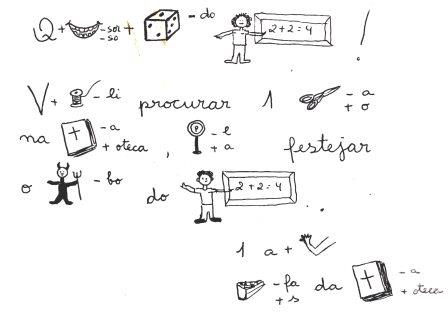 Q + - sor - so + - do 2+2=4 !
V + - li procurar 1 - a + o
na - a + oteca , P - e + a festejar
o - bo do 2+2=4 .
1 a +
- fa + s da - a + oteca